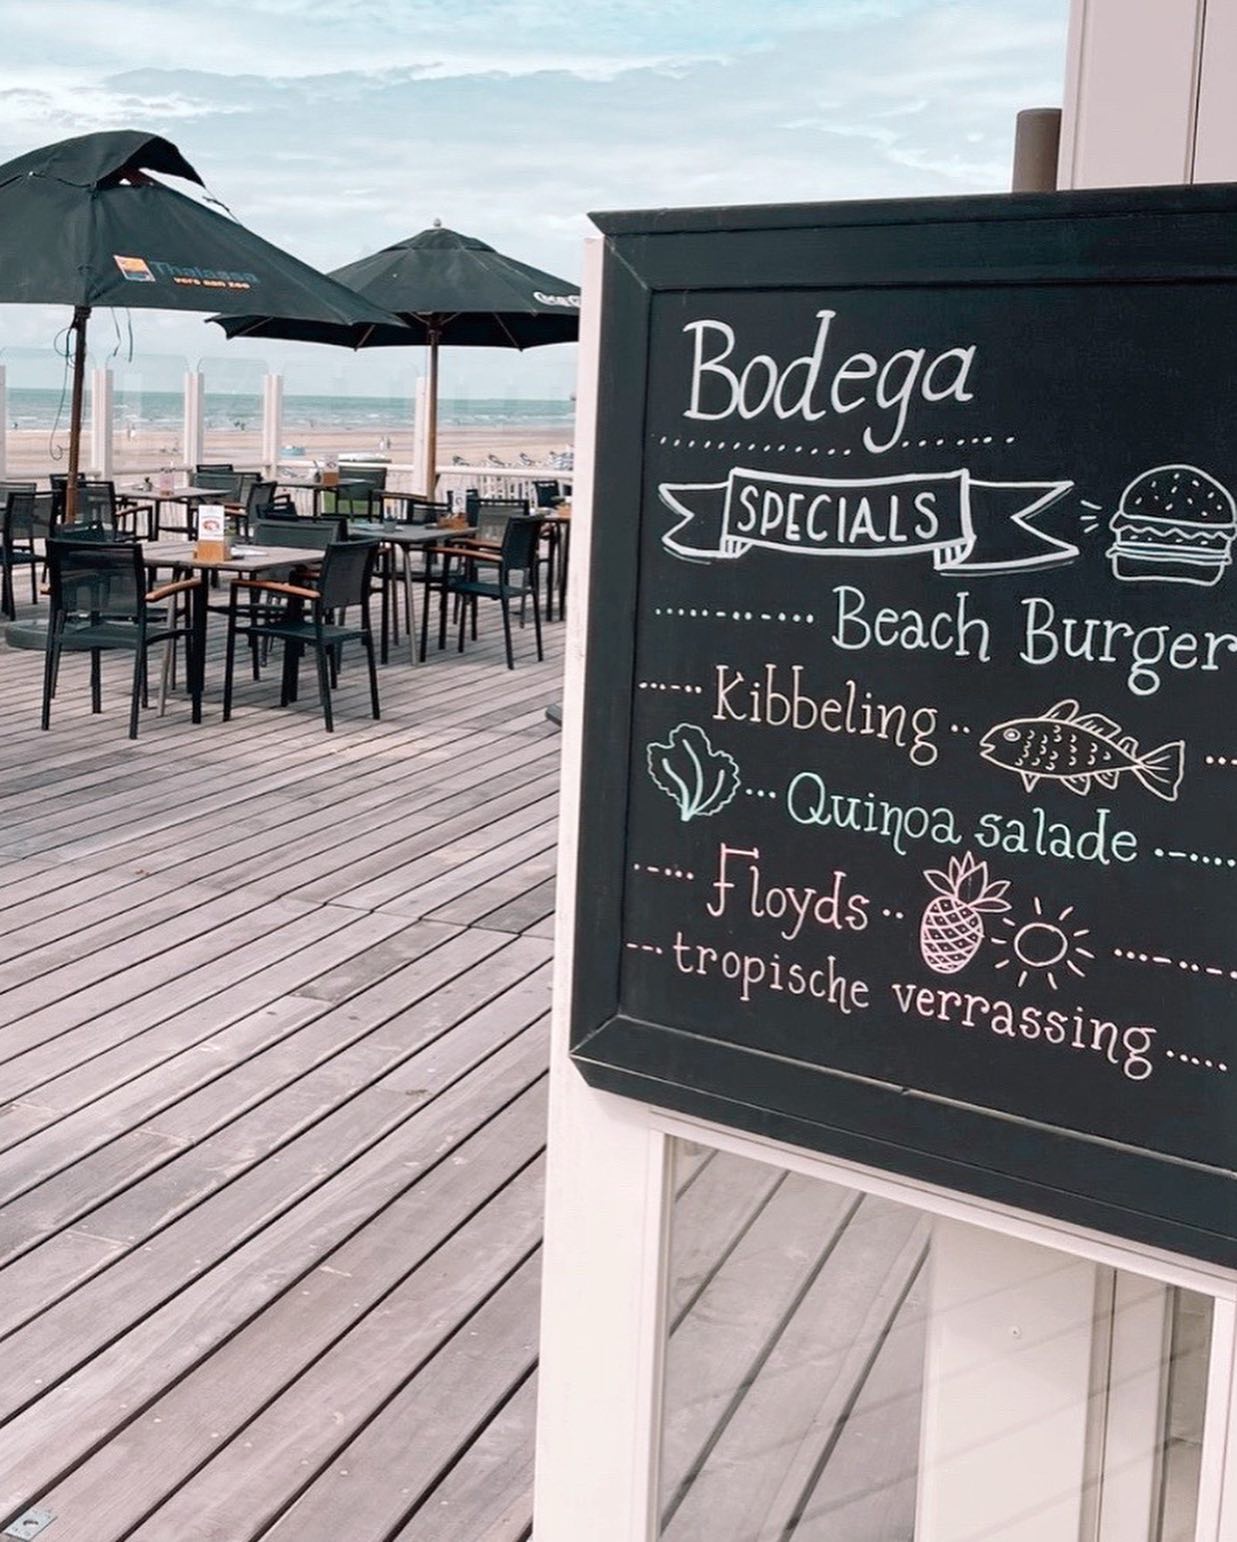 Thalassa
vers aan zee
Bodega
SPECIALS
Beach Burger
Kibbeling
Quinoa salade
Floyds
tropische verrassing